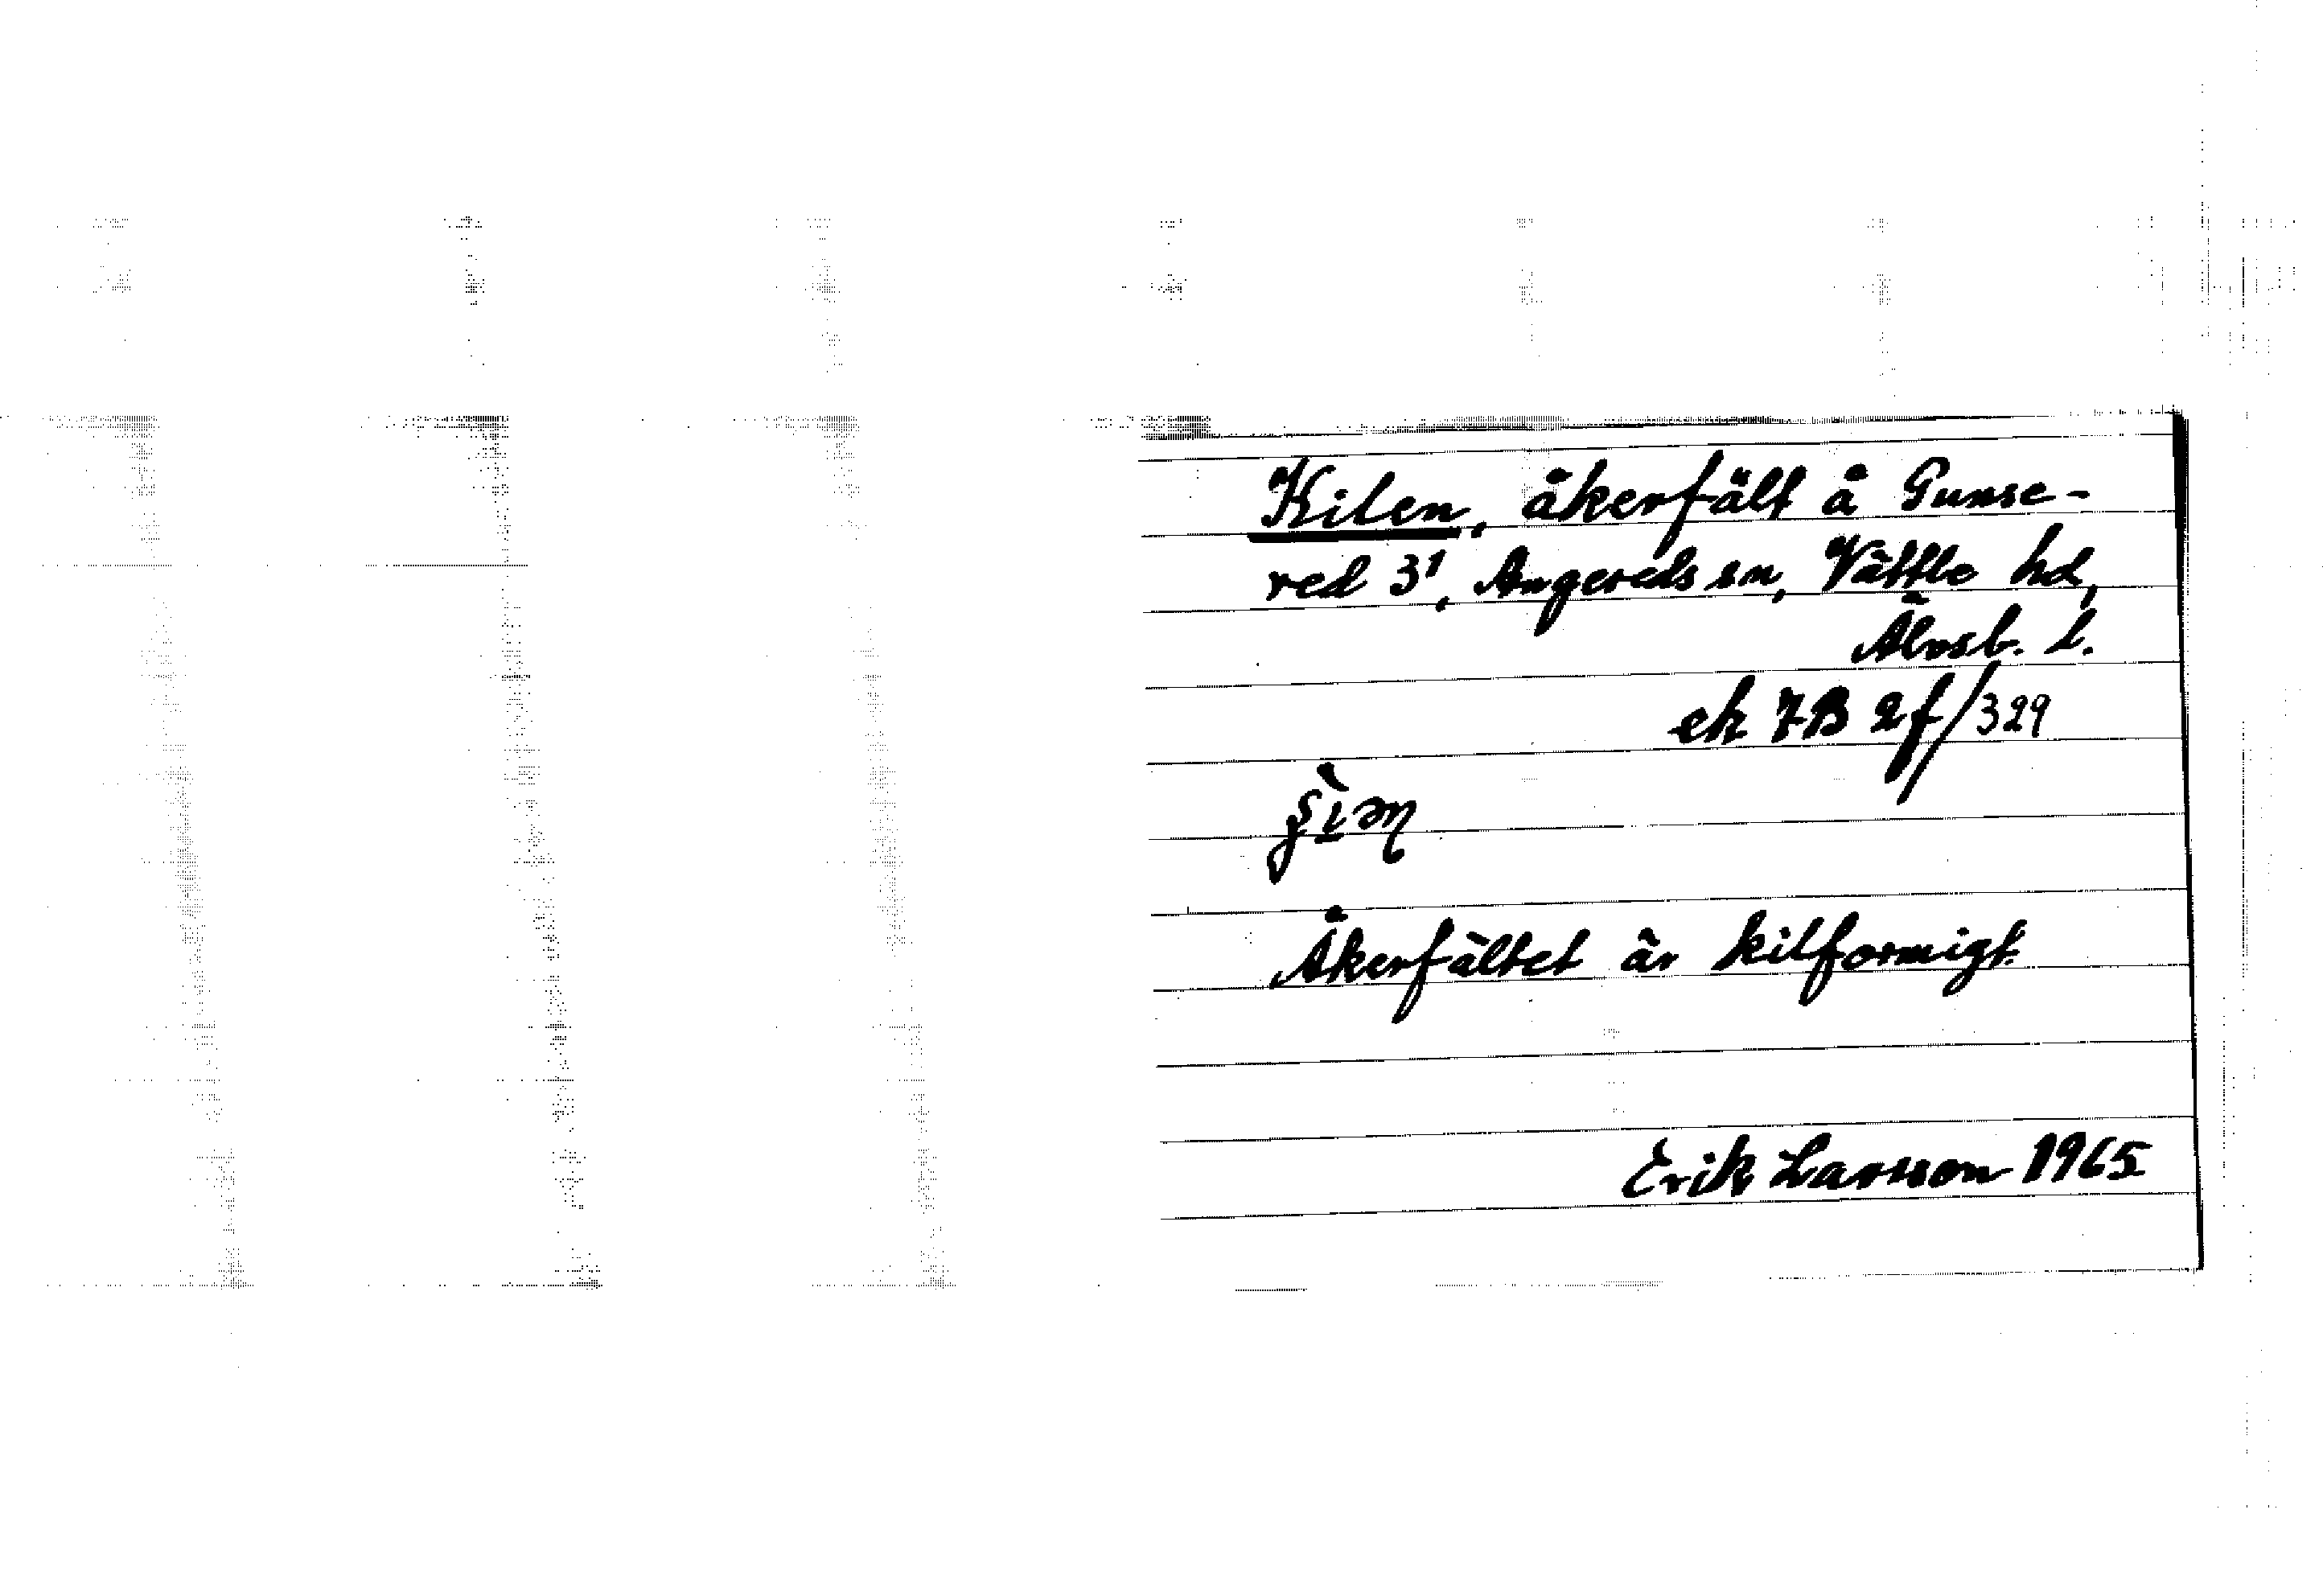 Kilen, åkerfält å Gunse-
red 3¹, Angereds sn, Vättle hd,
Älvsb. l.
ek 7B 2f/329
Åkerfältet är kilformigt.
Erik Larsson 1965